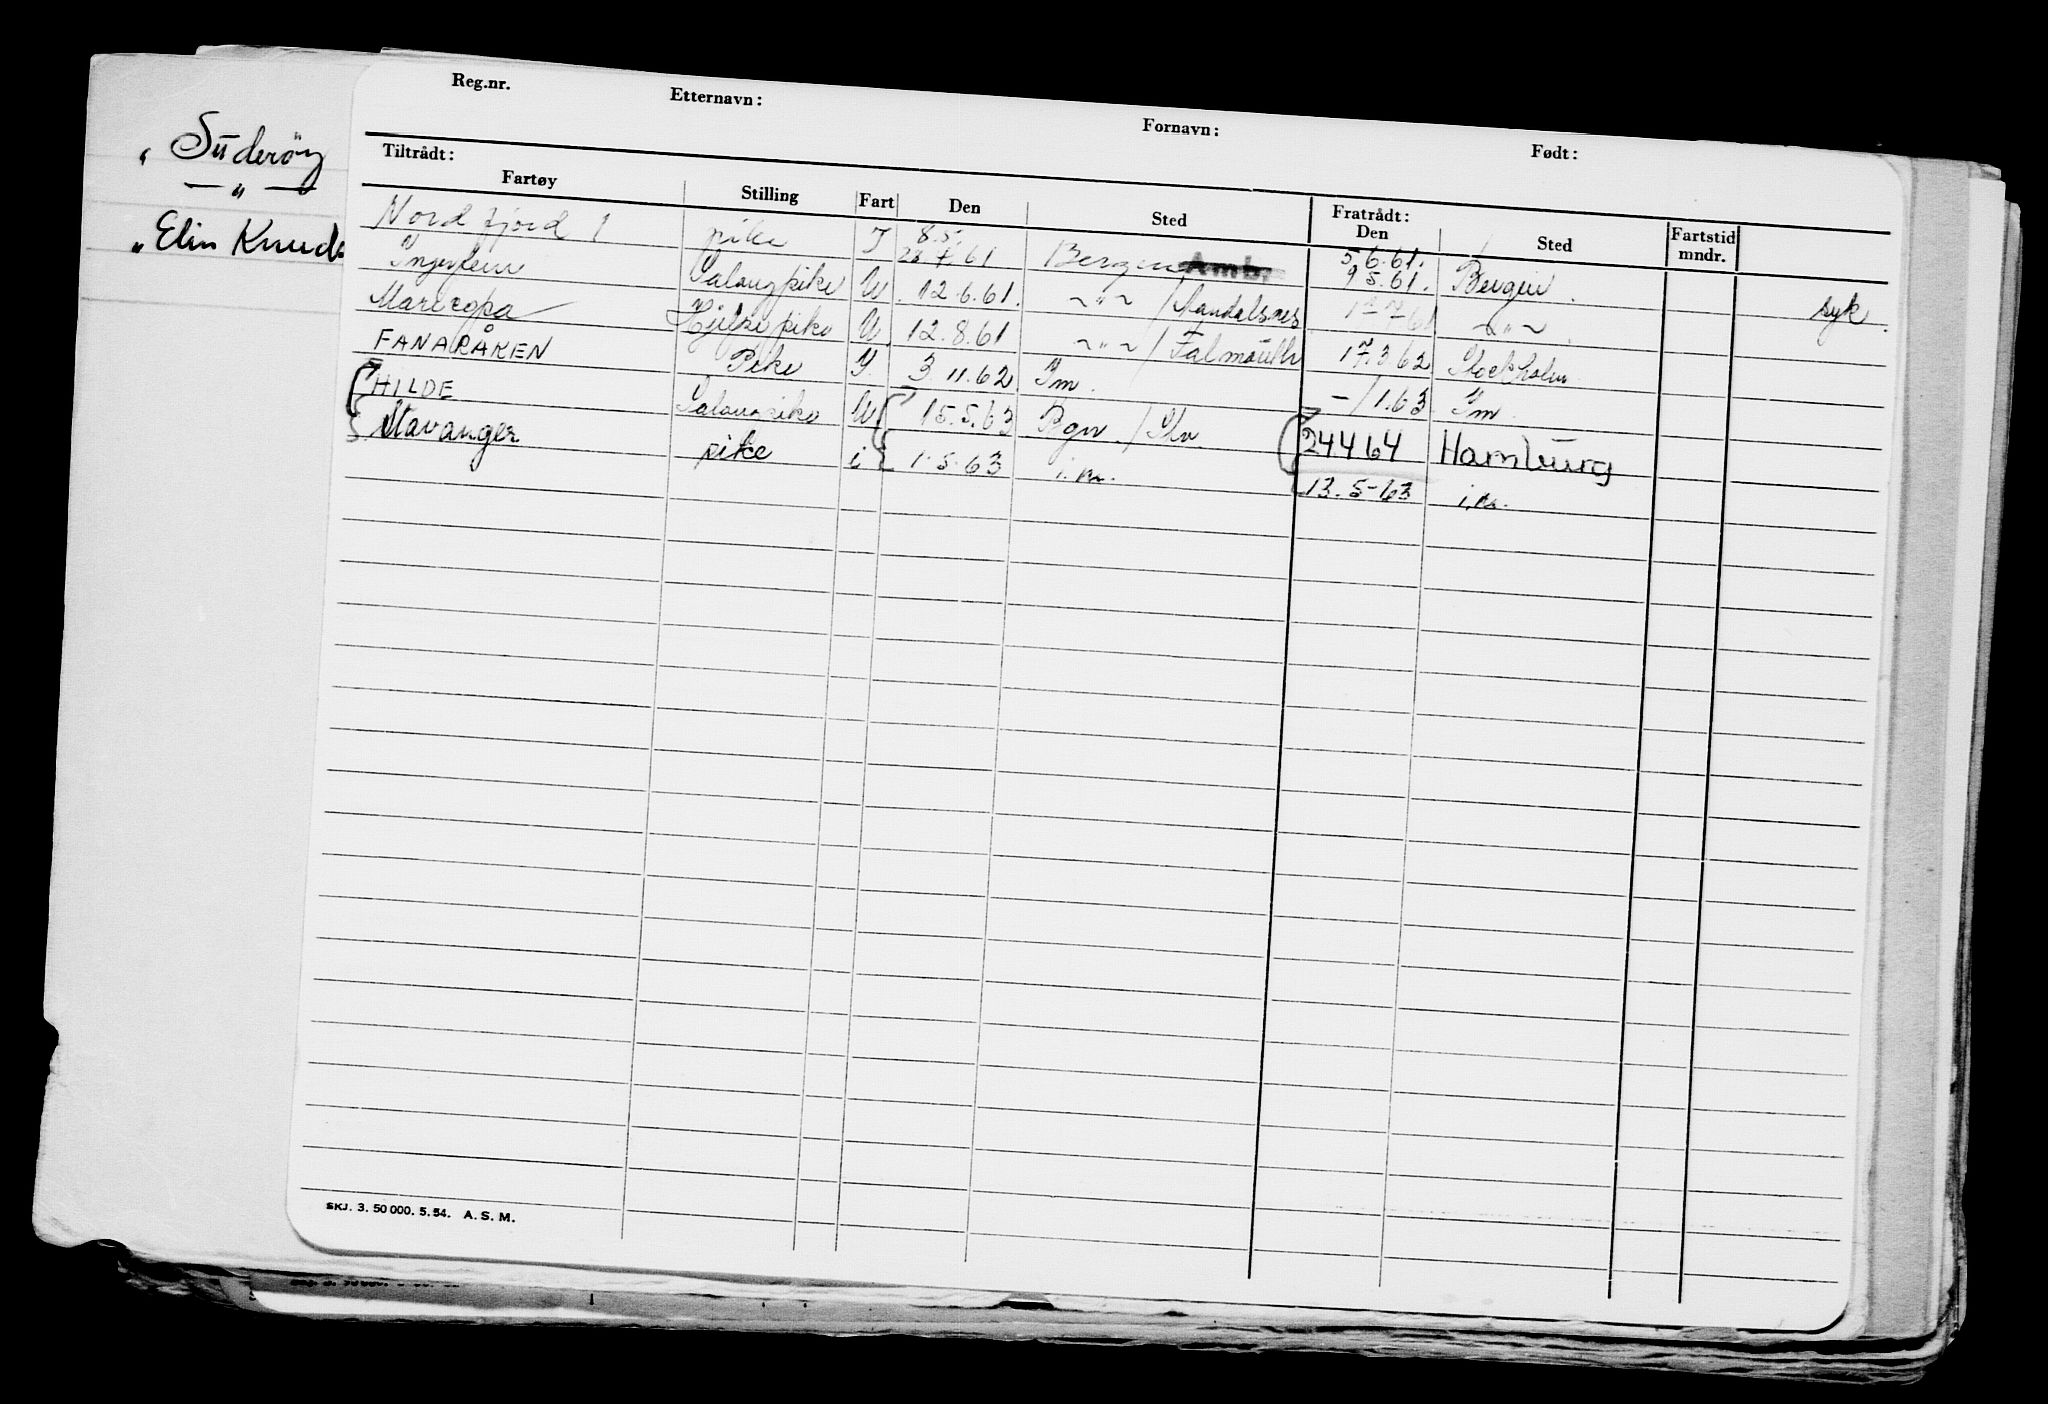 „Süderöy
— „ —
„Elin Knuds
Reg.nr. Etternavn: Fornavn: Født:
Tiltrådt: Fratrådt:
Fartøy Stilling Fart Den Sted Den Sted Fartstid mndr.
Nordfjord 1 pike I 8.5. 61 Bergen 5.6.61. 9 5.61. Bergen
Salongpike U. 12.6.61. ~"~ / Åandalsnes 7 61 ~"~ syk.
Maricopa Hjelpepike U. 12.8.61 ~"~ / Falmouth 17.3 62 Stockholm
FANARÅKEN Pike I 3 11.62 Im. -/1.63 Im.
HILDE Salongpike U 15.5.63 Bgn / Slv 24 4 64 Hamburg
Stavanger pike i 1.5.63 i.m. 13.5-63 i.m.
SKJ. 3. 50 000. 5. 54. A. S. M.